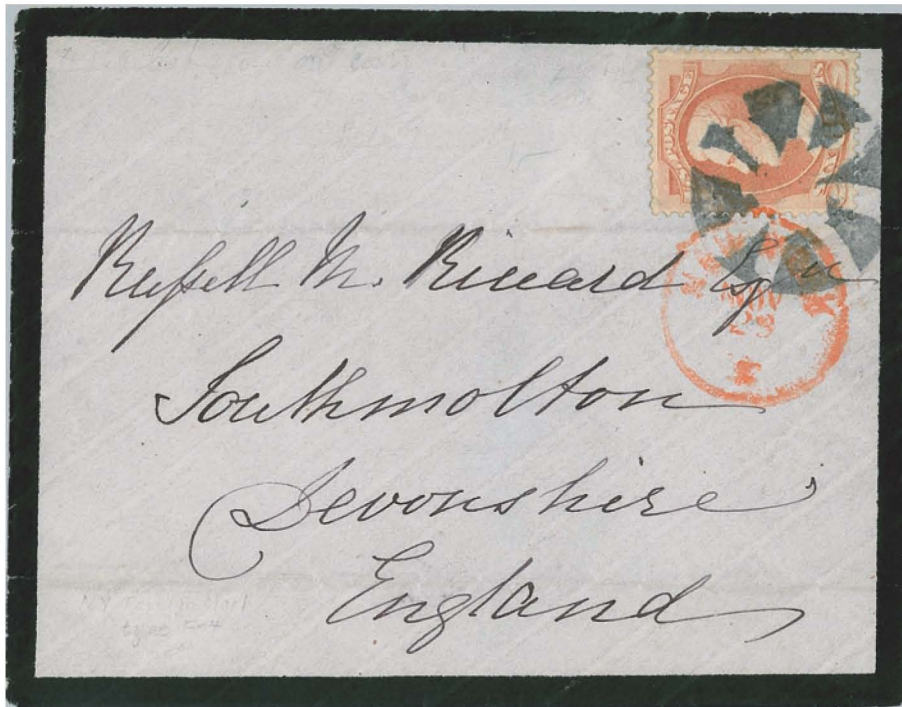 POSTAGE
Russell M. Riccard Esqr
Southmolton
Devonshire
England
NY
type